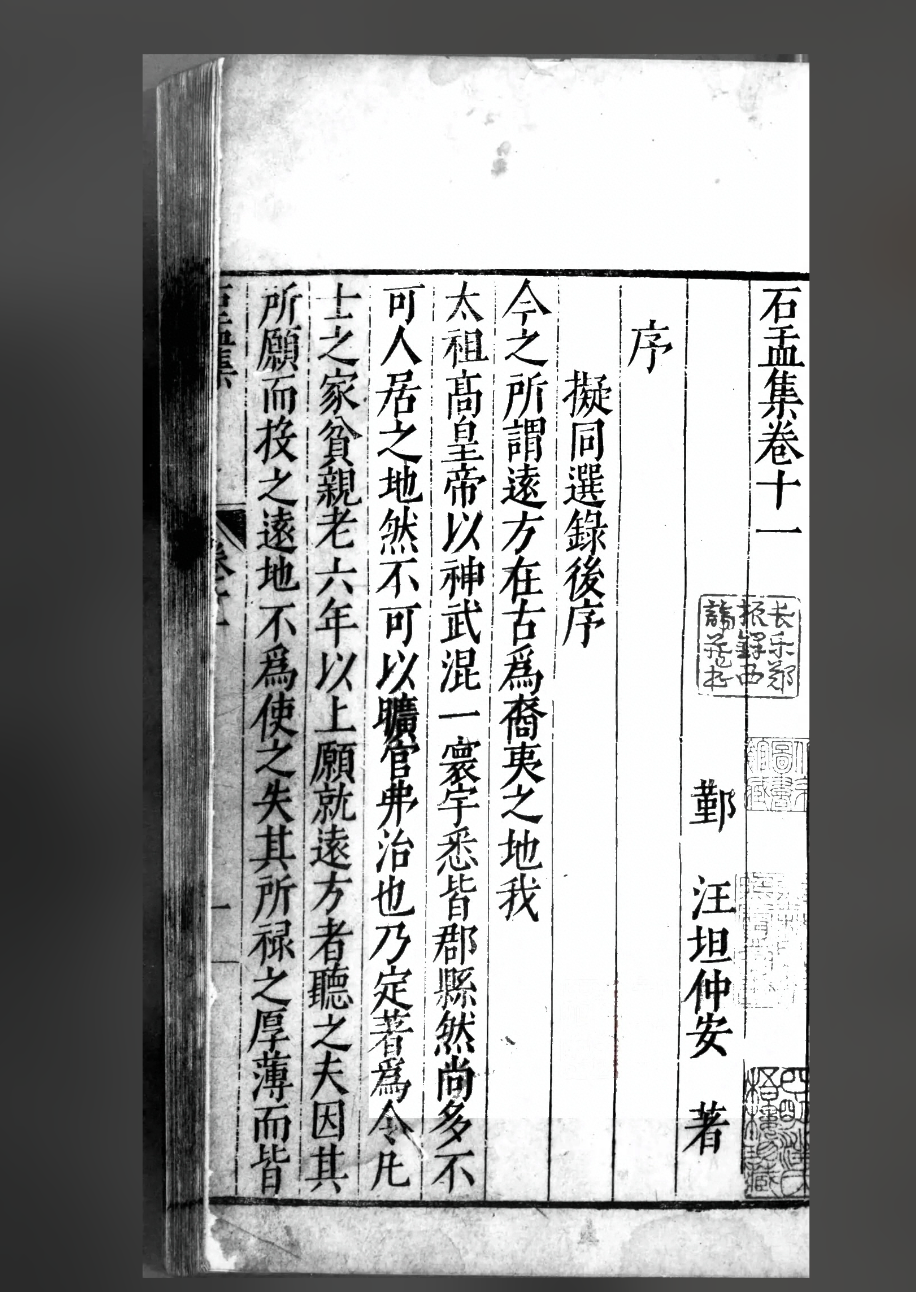 石盂集卷十一
鄞 汪坦仲安 著
序
擬同選錄後序
今之所謂遠方在古爲裔夷之地我
太祖高皇帝以神武混一寰宇悉皆郡縣然尚多不
可人居之地然不可以曠官弗治也乃定著爲令凡
士之家貧親老六年以上願就遠方者聽之夫因其
所願而投之遠地不爲使之失其所禄之厚薄而皆
石盂集
卷十一
一
長樂鄭
振鐸西
諦藏書